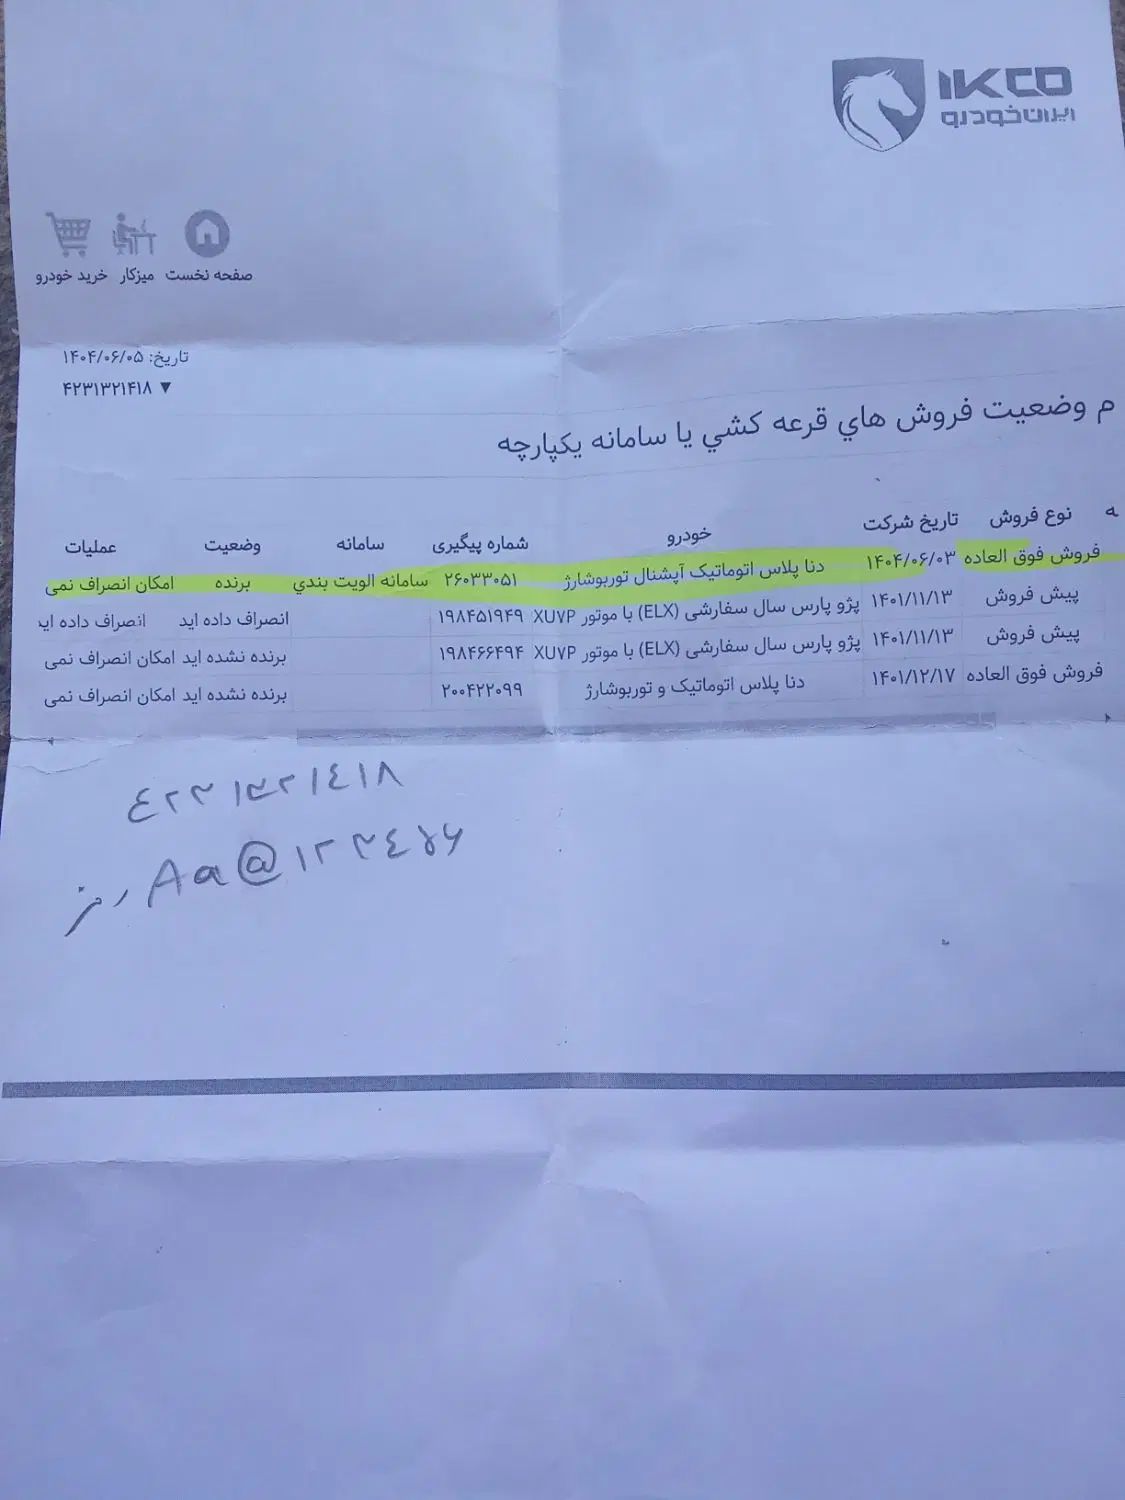 IKCO
ایران خودرو
صفحه نخست میزکار خرید خودرو
تاریخ: ۱۴۰۴/۰۶/۰۵
▼ ۴۲۳۱۳۲۱۴۱۸
م وضعیت فروش هاي قرعه کشي یا سامانه یکپارچه
ه نوع فروش تاریخ شرکت خودرو شماره پیگیری سامانه وضعیت عملیات
فروش فوق العاده ۱۴۰۴/۰۶/۰۳ دنا پلاس اتوماتیک آپشنال توربوشارژ ۲۶۰۳۳۰۵۱ سامانه الویت بندي برنده امکان انصراف نمی
پیش فروش ۱۴۰۱/۱۱/۱۳ پژو پارس سال سفارشی (ELX) با موتور XU۷P ۱۹۸۴۵۱۹۴۹ انصراف داده اید انصراف داده اید
پیش فروش ۱۴۰۱/۱۱/۱۳ پژو پارس سال سفارشی (ELX) با موتور XU۷P ۱۹۸۴۶۶۴۹۴ برنده نشده اید امکان انصراف نمی
فروش فوق العاده ۱۴۰۱/۱۲/۱۷ دنا پلاس اتوماتیک و توربوشارژ ۲۰۰۴۲۲۰۹۹ برنده نشده اید امکان انصراف نمی
۴۲۳۱۳۲۱۴۱۸
رمز Aa@۱۲۳۴۵۶